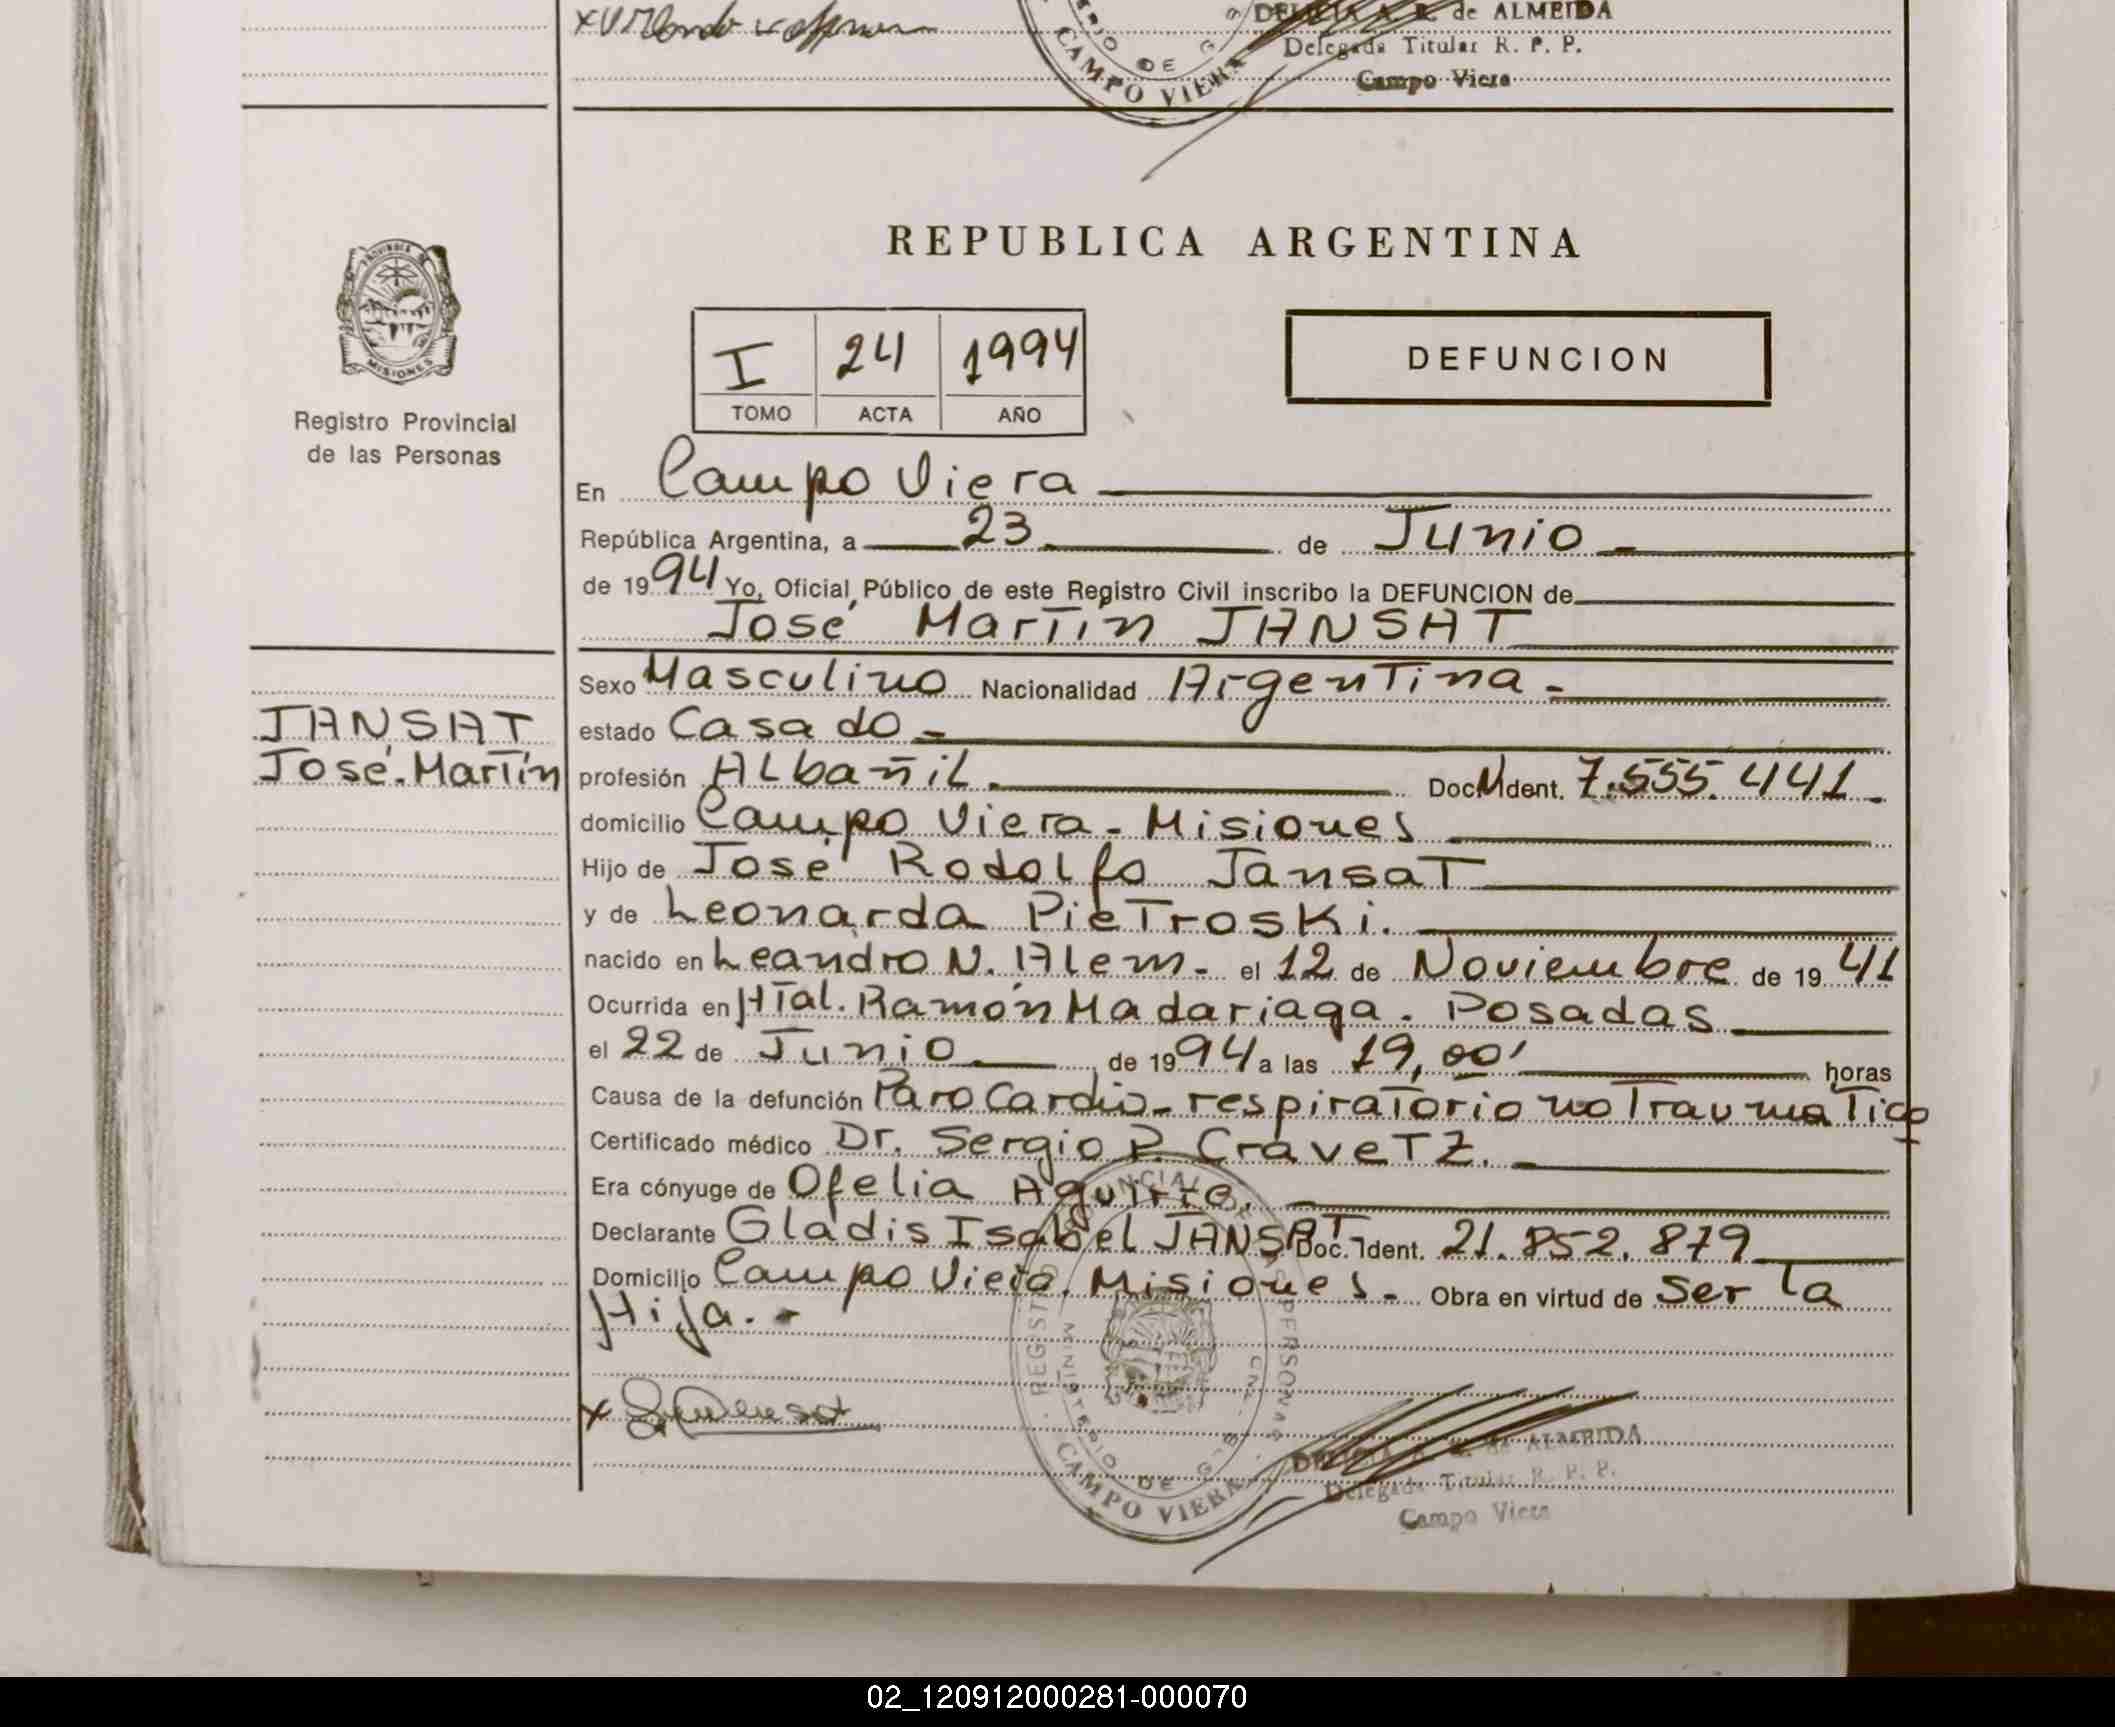 DELICIA A. R. de ALMEIDA
Delegada Titular R. P. P.
Campo Viera
DE
CAMPO VIERA
REPUBLICA ARGENTINA
PROVINCIA DE
MISIONES
Registro Provincial
de las Personas
I 24 1994
TOMO ACTA AÑO
DEFUNCION
En Campo Viera
República Argentina, a 23 de Junio -
de 1994 Yo, Oficial Público de este Registro Civil inscribo la DEFUNCION de
José Martín JANSAT
JANSAT
José. Martín
Sexo Masculino Nacionalidad Argentina -
estado Casado -
profesión Albañil. Doc. Ident. 7.555.441 -
domicilio Campo Viera - Misiones
Hijo de José Rodolfo Jansat
y de Leonarda Pietroski.
nacido en Leandro N. Alem. - el 12 de Noviembre de 1941
Ocurrida en Htal. Ramón Madariaga. Posadas
el 22 de Junio de 1994 a las 19,00' horas
Causa de la defunción Paro Cardio-respiratorio no Traumatico
Certificado médico Dr. Sergio P. Cravetz.
Era cónyuge de Ofelia Aguirre.
Declarante Gladis Isabel JANSAT Doc. Ident. 21.852.879
Domicilio Campo Viera. Misiones. - Obra en virtud de ser la
Hija. -
x
MINISTERIO DE
CAMPO VIERA
DELICIA A. R. de ALMEIDA
Delegada Titular R. P. P.
Campo Viera
02_120912000281-000070